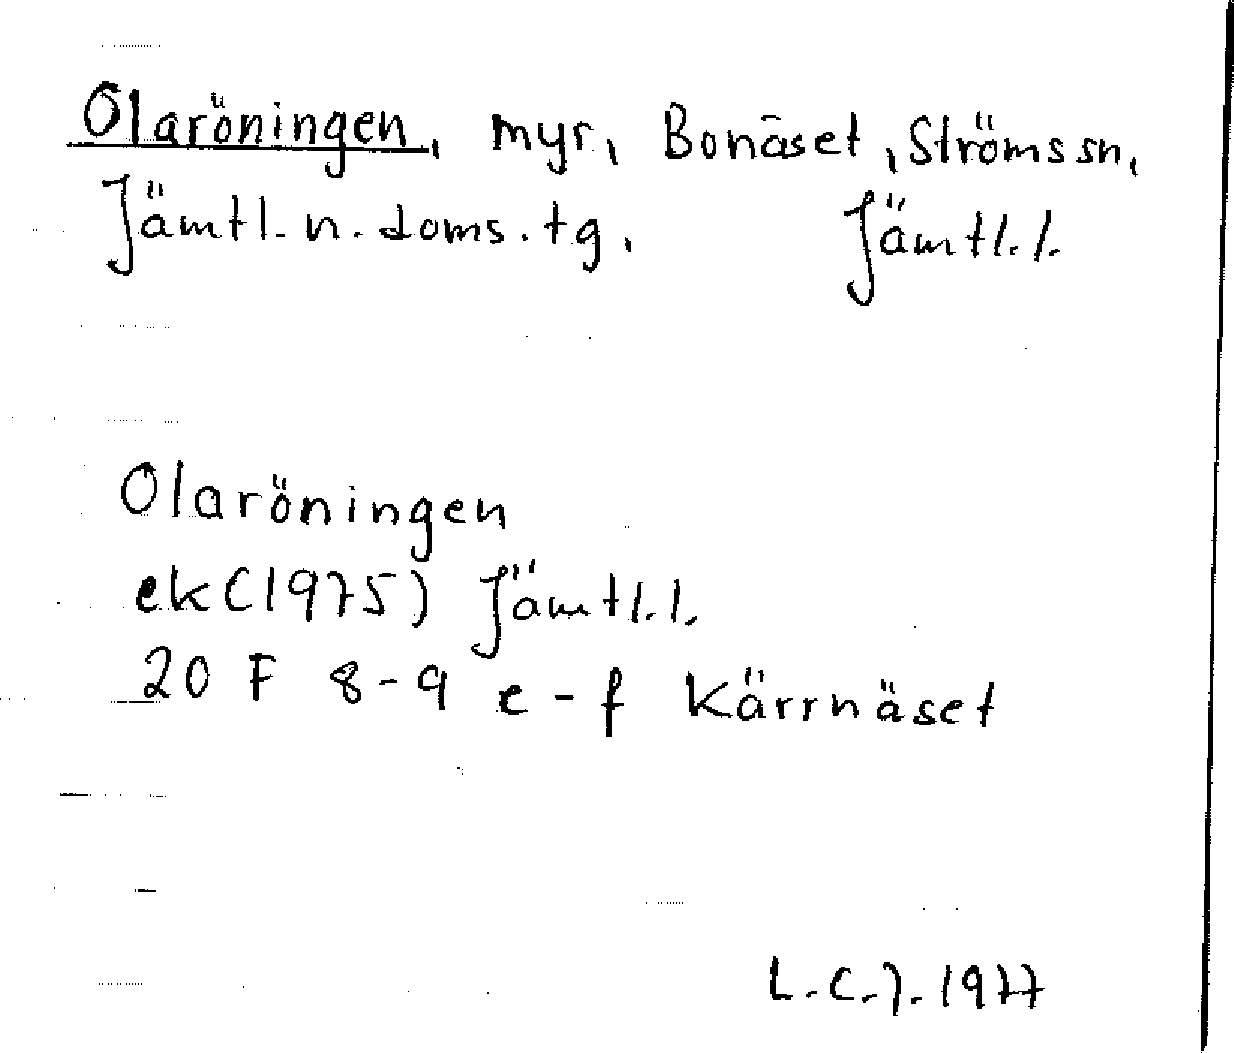 Olaröningen, myr, Bonäset, Strömssn,
Jämtl. n. doms. tg. Jämtl. l.
Olaröningen
ek (1975) Jämtl. l.
20 F 8-9 e-f Kärrnäset
L.C.J. 1977